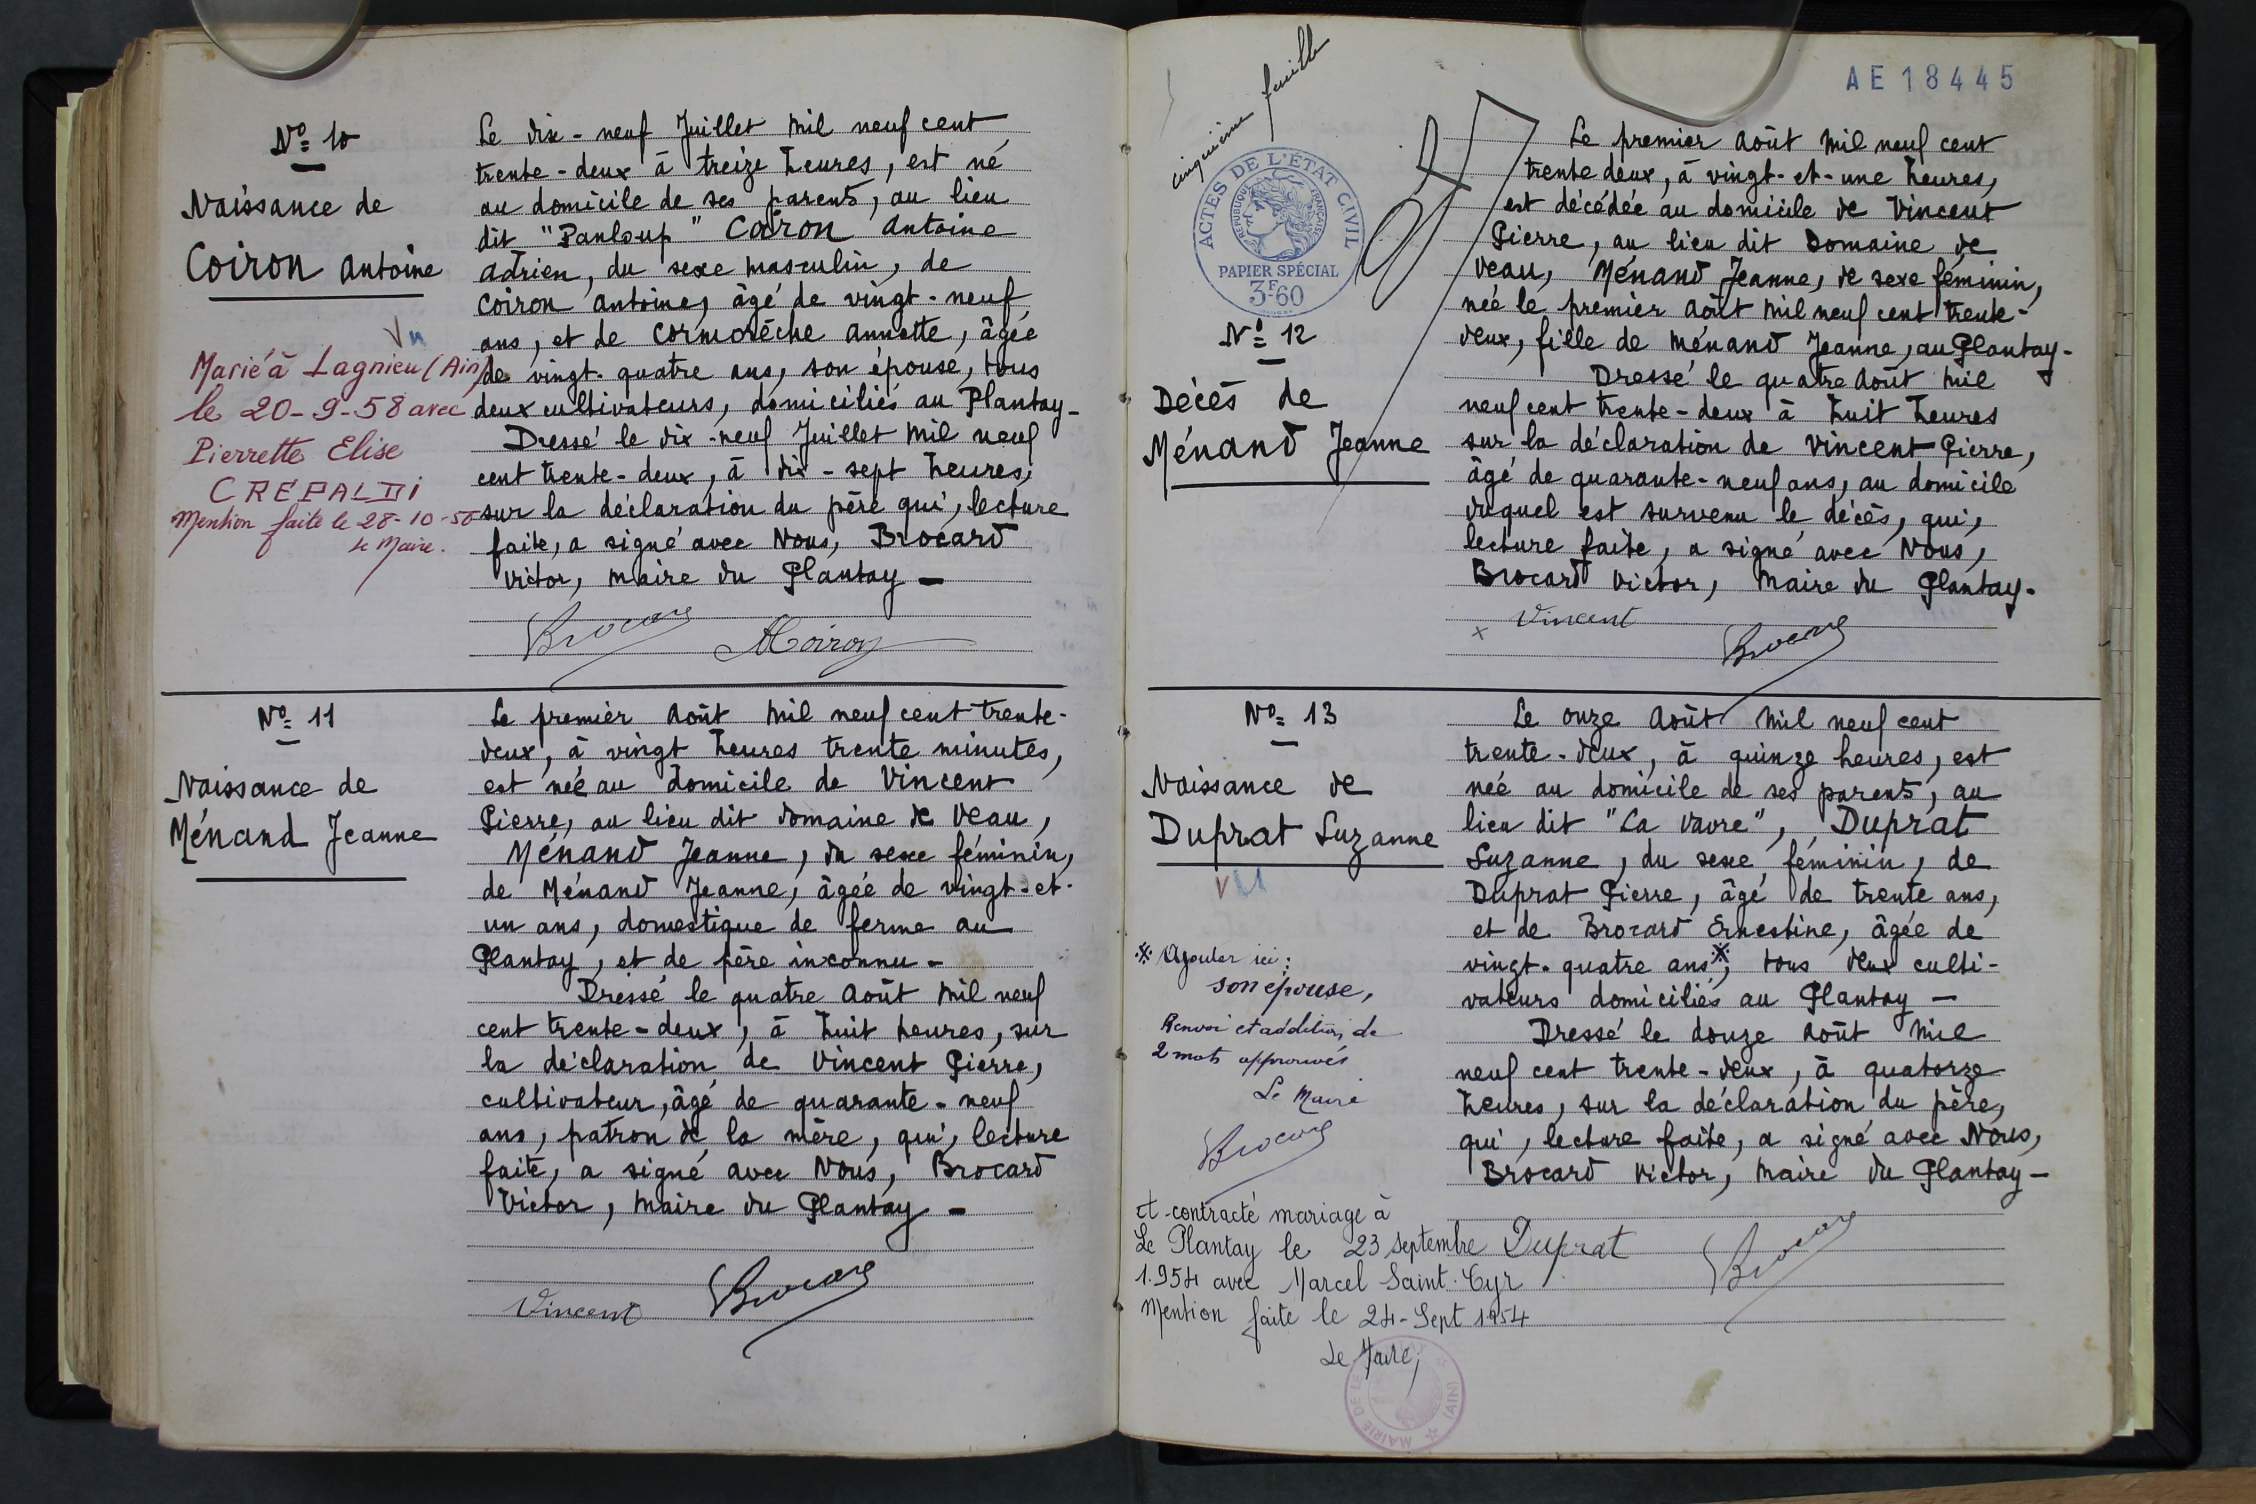 Nº 10
Naissance de
Coiron Antoine
Vu
Marié à Lagnieu (Ain)
le 20-9-58 avec
Pierrette Elise
CREPALDI
Mention faite le 28-10-58
le Maire.
Le dix-neuf Juillet mil neuf cent
trente-deux à treize heures, est né
au domicile de ses parents, au lieu
dit "Panloup" Coiron Antoine
Adrien, du sexe masculin, de
Coiron Antoine, âgé de vingt-neuf
ans, et de Cormorèche Annette, âgée
de vingt-quatre ans, son épouse, tous
deux cultivateurs, domiciliés au Plantay-
Dressé le dix-neuf Juillet mil neuf
cent trente-deux, à dix-sept heures,
sur la déclaration du père qui, lecture
faite, a signé avec Nous, Brocard
Victor, maire du Plantay -
Brocard ACoiron
Nº 11
Naissance de
Ménand Jeanne
Le premier Août mil neuf cent trente-
deux, à vingt heures trente minutes,
est née au domicile de Vincent
Pierre, au lieu dit domaine de Veau,
Ménand Jeanne, du sexe féminin,
de Ménand Jeanne, âgée de vingt-et-
un ans, domestique de ferme au
Plantay, et de père inconnu -
Dressé le quatre Août mil neuf
cent trente-deux, à huit heures, sur
la déclaration de Vincent Pierre,
cultivateur, âgé de quarante-neuf
ans, patron de la mère, qui, lecture
faite, a signé avec Nous, Brocard
Victor, maire du Plantay -
Vincent Brocard
cinquième feuille
AE 18445
ACTES DE L'ÉTAT CIVIL
RÉPUBLIQUE FRANÇAISE
PAPIER SPÉCIAL
3F60
Nº 12
Décès de
Ménand Jeanne
Le premier Août mil neuf cent
trente deux, à vingt-et-une heures,
est décédée au domicile de Vincent
Pierre, au lieu dit Domaine de
Veau, Ménand Jeanne, de sexe féminin,
née le premier Août mil neuf cent trente-
deux, fille de Ménand Jeanne, au Plantay-
Dressé le quatre Août mil
neuf cent trente-deux à huit heures
sur la déclaration de Vincent Pierre,
âgé de quarante-neuf ans, au domicile
duquel est survenu le décès, qui,
lecture faite, a signé avec Nous,
Brocard Victor, Maire du Plantay-
x Vincent Brocard
Nº 13
Naissance de
Duprat Suzanne
VU
※ Ajouter ici :
son épouse,
Renvoi et addition de
2 mots approuvés
Le Maire
Brocard
Le onze Août mil neuf cent
trente-deux, à quinze heures, est
née au domicile de ses parents, au
lieu dit "La Vavre", Duprat
Suzanne, du sexe féminin, de
Duprat Pierre, âgé de trente ans,
et de Brocard Ernestine, âgée de
vingt-quatre ans※, tous deux culti-
vateurs domiciliés au Plantay -
Dressé le douze Août mil
neuf cent trente-deux, à quatorze
heures, sur la déclaration du père,
qui, lecture faite, a signé avec Nous,
Brocard Victor, Maire du Plantay -
Duprat Brocard
et contracté mariage à
Le Plantay le 23 septembre
1.954 avec Marcel Saint-Cyr
Mention faite le 24-Sept 1954
Le Maire,
MAIRIE DE (AIN)